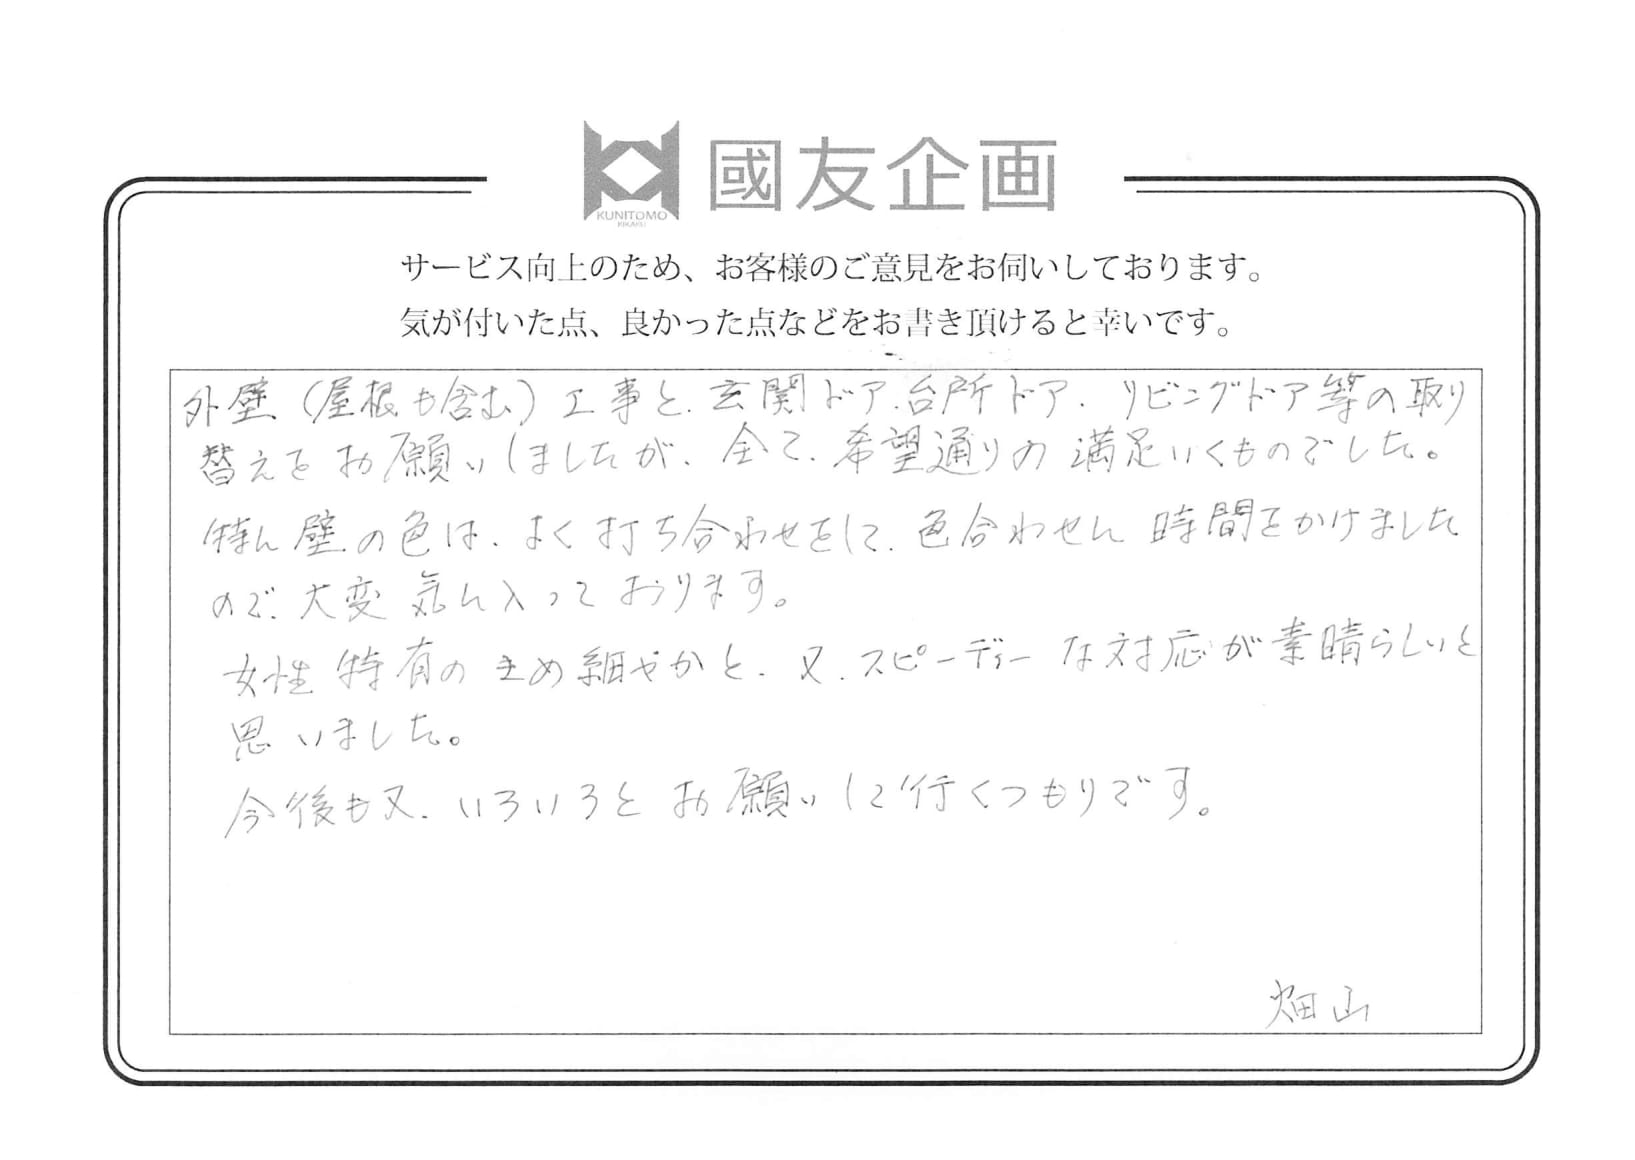 國友企画
KUNITOMO
KIKAKU
サービス向上のため、お客様のご意見をお伺いしております。
気が付いた点、良かった点などをお書き頂けると幸いです。
外壁(屋根も含む)工事と、玄関ドア、台所ドア、リビングドア等の取り
替えをお願いしましたが、全て、希望通りの満足いくものでした。
特に壁の色は、よく打ち合わせをして、色合わせに時間をかけました
ので、大変気に入っております。
女性特有のきめ細やかと、又、スピーディーな対応が素晴らしいと
思いました。
今後も又、いろいろとお願いして行くつもりです。
畑山